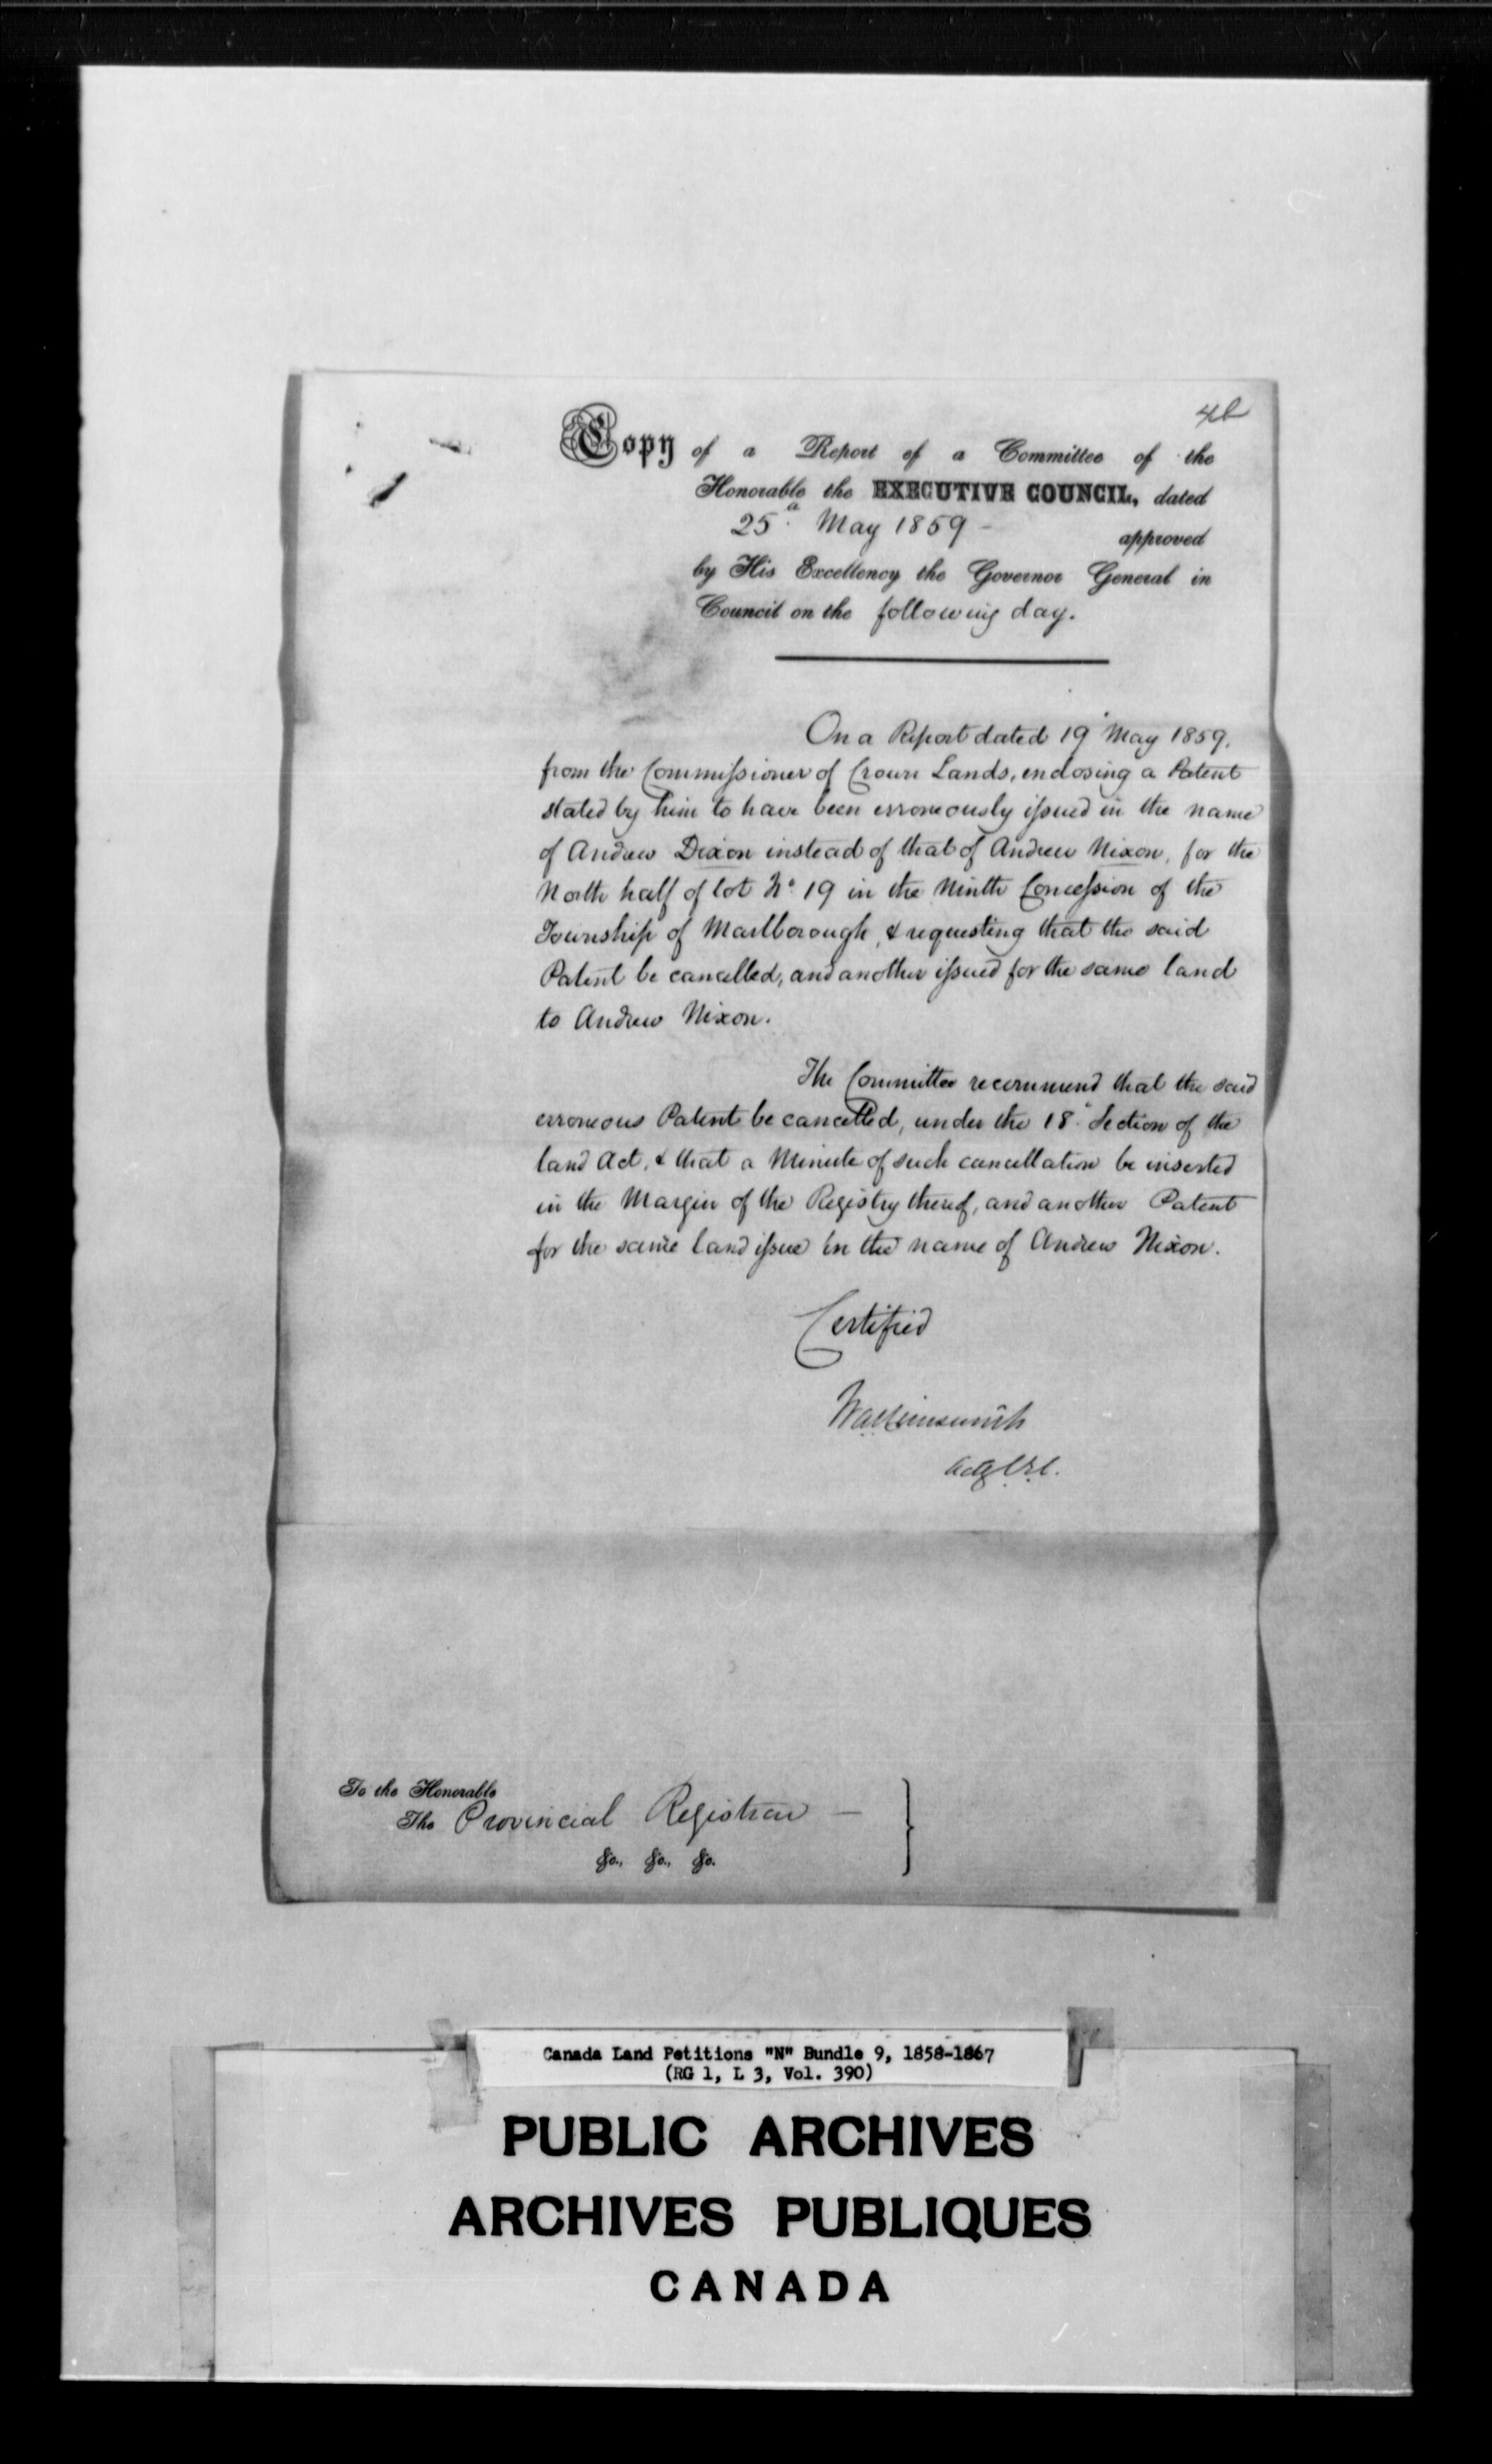 4b
Copy of a Report of a Committee of the
Honorable the EXECUTIVE COUNCIL, dated
25th May 1859 -
approved
by His Excellency the Governor General in
Council on the following day.
On a Report dated 19 May 1859,
from the Commissioner of Crown Lands, enclosing a Patent
stated by him to have been erroneously issued in the name
of Andrew Dixon instead of that of Andrew Nixon, for the
North half of lot No. 19 in the Ninth Concession of the
Township of Marlborough, & requesting that the said
Patent be cancelled, and another issued for the same land
to Andrew Nixon.
The Committee recommend that the said
erroneous Patent be cancelled, under the 18 Section of the
land Act, & that a Minute of such cancellation be inserted
in the Margin of the Registry thereof, and another Patent
for the same land issue in the name of Andrew Nixon.
Certified
To the Honorable
The Provincial Registrar —
&c., &c., &c.
Canada Land Petitions "N" Bundle 9, 1858-1867
(RG 1, L 3, Vol. 390)
PUBLIC ARCHIVES
ARCHIVES PUBLIQUES
CANADA